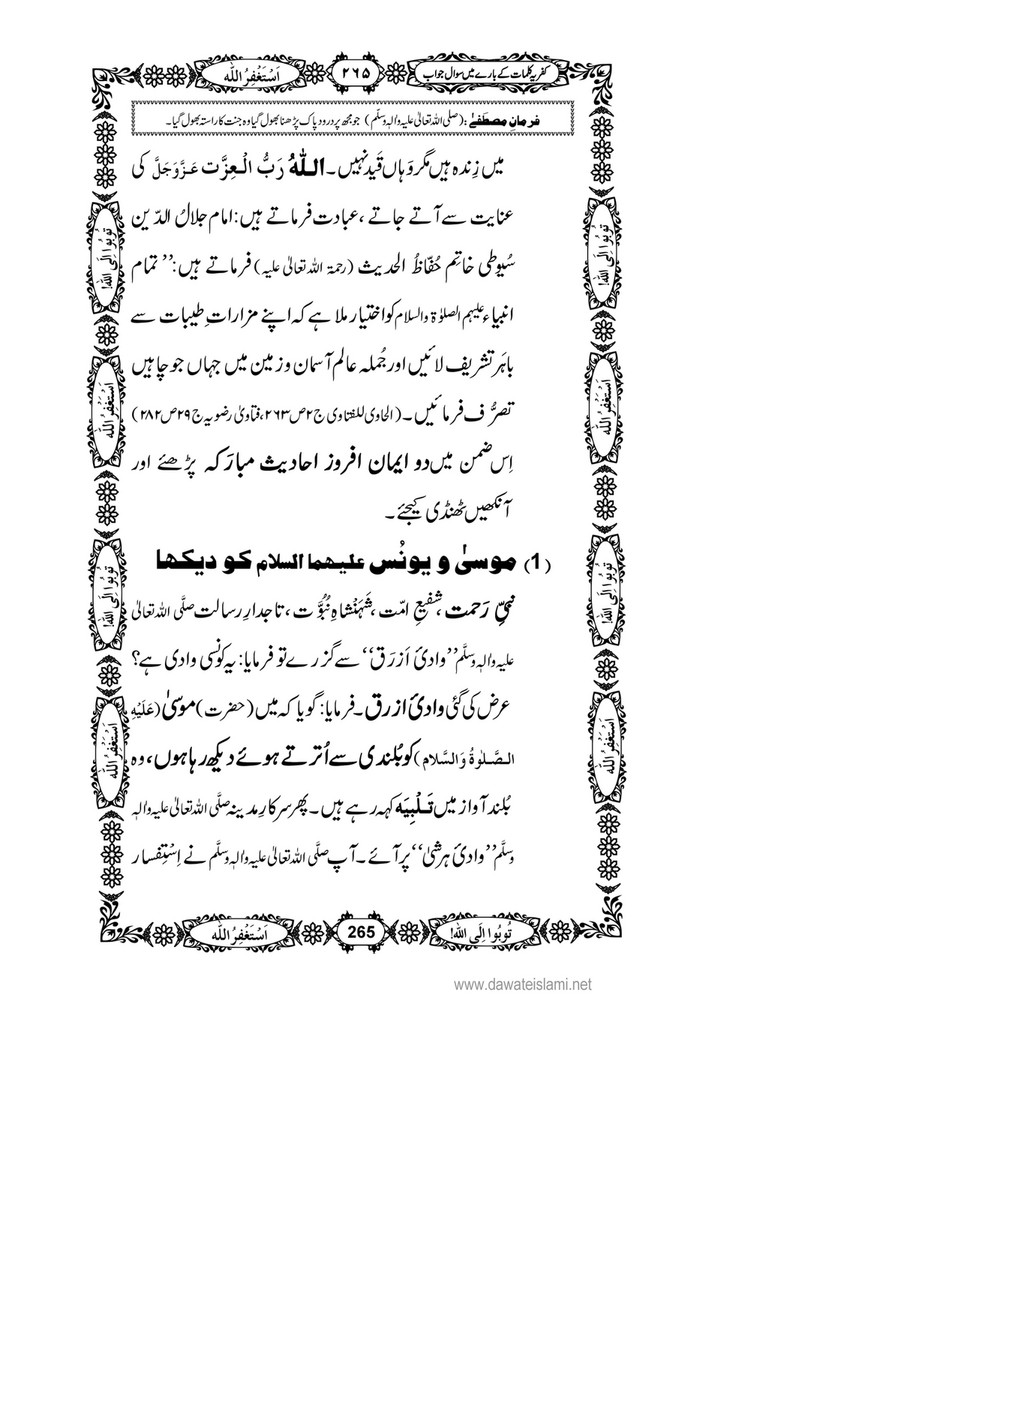 کفریہ کلمات کے بارے میں سوال جواب
۲۶۵
اَسْتَغْفِرُ اللّٰه
فرمانِ مصطفےٰ : (صلی اللہ تعالیٰ علیہ واٰلہٖ وسلّم) جو مجھ پر درود پاک پڑھنا بھول گیا وہ جنت کا راستہ بھول گیا۔
میں زِندہ ہیں مگر وَہاں قَید نہیں۔ اللّٰهُ رَبُّ الْعِزَّت عَزَّوَجَلَّ کی
عنایت سے آتے جاتے ، عبادت فرماتے ہیں: امام جلالُ الدّین
سُیوطی خاتِم حُفّاظُ الحدیث (رحمۃ اللہ تعالیٰ علیہ) فرماتے ہیں: ’’ تمام
انبیاء علیہم الصلوٰۃ والسلام کو اختیار ملا ہے کہ اپنے مزاراتِ طیبات سے
باہَر تشریف لائیں اور جُملہ عالم آسمان و زمین میں جہاں جو چاہیں
تصرُّف فرمائیں۔ (الحاوی للفتاوی ج۲ ص۲۶۳، فتاویٰ رضویہ ج۲۹ ص۲۸۲)
اِس ضمن میں دو ایمان افروز احادیث مبارَکہ پڑھئے اور
آنکھیں ٹھنڈی کیجئے۔
(1) موسیٰ و یونُس علیهما السلام کو دیکھا
نبیِّ رَحمت ، شفیعِ امّت ، شَہَنْشاہِ نُبُوَّت ، تاجدارِ رسالت صلَّی اللہ تعالیٰ
علیہ واٰلہٖ وسلَّم ’’وادیٔ اَزرَق‘‘ سے گزرے تو فرمایا: یہ کونسی وادی ہے؟
عرض کی گئی وادیٔ ازرق۔ فرمایا: گویا کہ میں (حضرت) موسیٰ (عَلَیْہِ
الصَّلٰوۃُ وَالسَّلام) کو بُلندی سے اُترتے ہوئے دیکھ رہا ہوں، وہ
بُلند آواز میں تَلْبِیَہ کہہ رہے ہیں۔ پھر سرکارِ مدینہ صلَّی اللہ تعالیٰ علیہ واٰلہٖ
وسلَّم ’’وادیٔ ہرشیٰ‘‘ پر آئے۔ آپ صلَّی اللہ تعالیٰ علیہ واٰلہٖ وسلَّم نے اِسْتِفسار
تُوبُوا اِلَی اللّٰه!
اَسْتَغْفِرُ اللّٰه
تُوبُوا اِلَی اللّٰه!
اَسْتَغْفِرُ اللّٰه
تُوبُوا اِلَی اللّٰه!
اَسْتَغْفِرُ اللّٰه
تُوبُوا اِلَی اللّٰه!
اَسْتَغْفِرُ اللّٰه
تُوبُوا اِلَی اللّٰه!
265
اَسْتَغْفِرُ اللّٰه
www.dawateislami.net